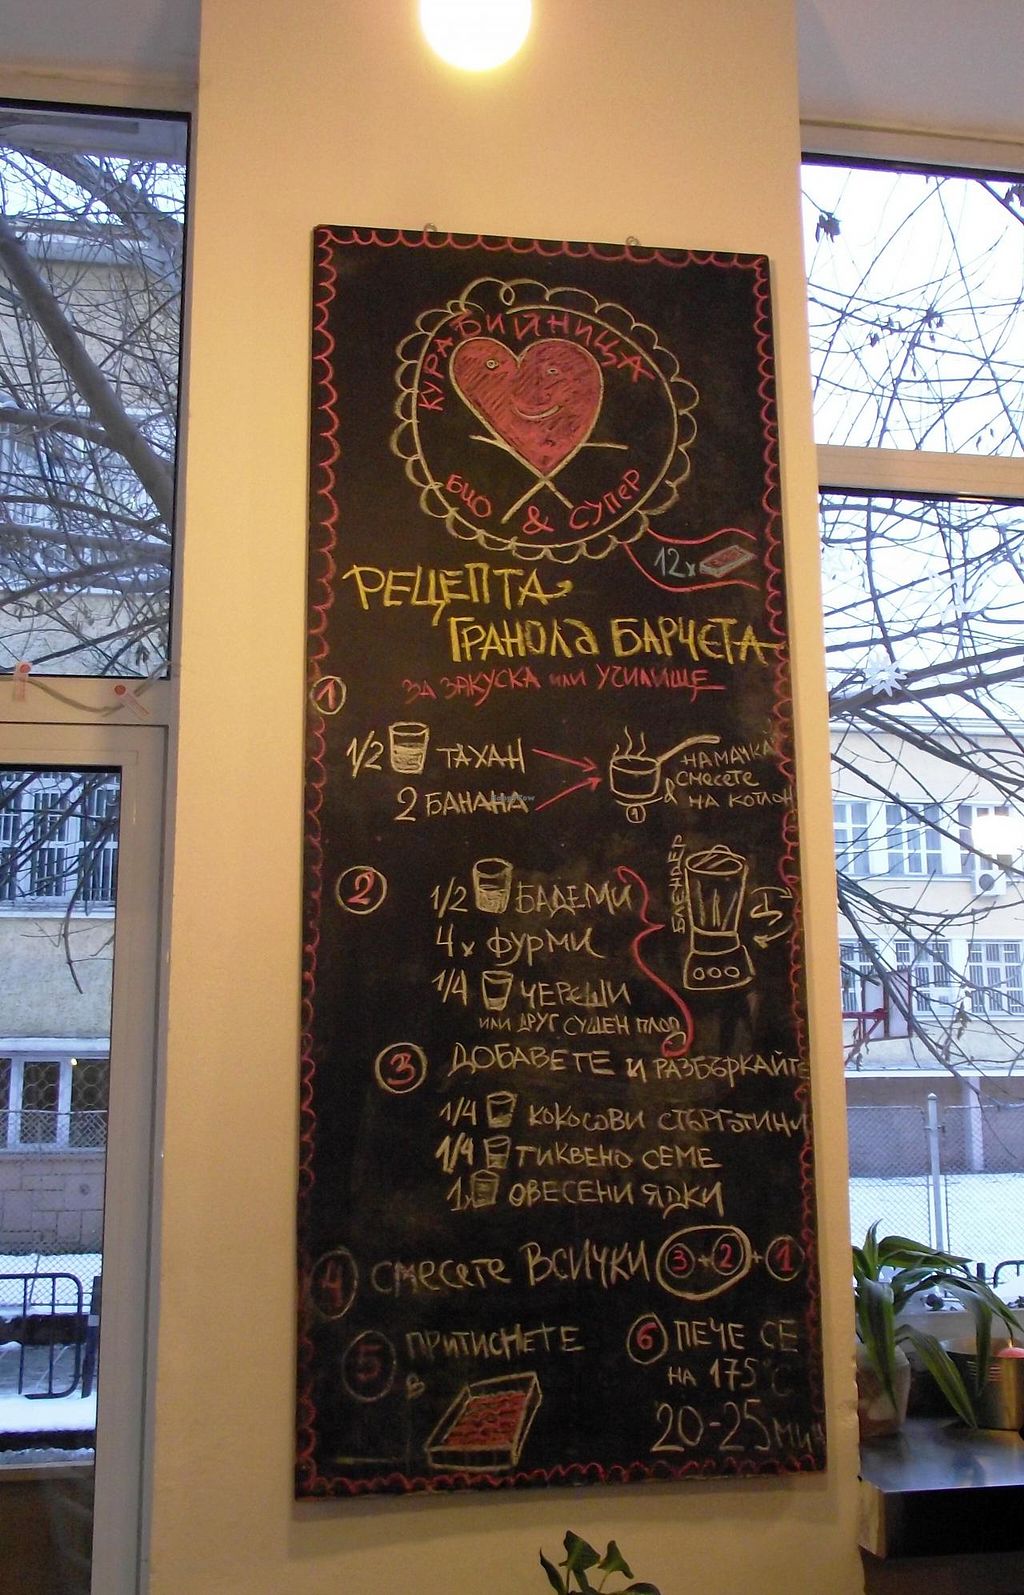 КУРАБИЙНИЦА
БИО & СУПЕР
12x
РЕЦЕПТА
ГРАНОЛА БАРЧЕТА
ЗА ЗАКУСКА ИЛИ УЧИЛИЩЕ
1
1/2 ТАХАН
2 БАНАНА
НАМАЧКАЙ
СМЕСЕТЕ
& НА КОТЛОН
1
2
1/2 БАДЕМИ
4x ФУРМИ
1/4 ЧЕРЕШИ
ИЛИ ДРУГ СУШЕН ПЛОД
БЛЕНДЕР
3 ДОБАВЕТЕ И РАЗБЪРКАЙТЕ
1/4 КОКОСОВИ СТЪРГОТИНИ
1/4 ТИКВЕНО СЕМЕ
1x ОВЕСЕНИ ЯДКИ
4 СМЕСЕТЕ ВСИЧКИ 3+2+1
5 ПРИТИСНЕТЕ
В
6 ПЕЧЕ СЕ
НА 175°C
20-25 МИН